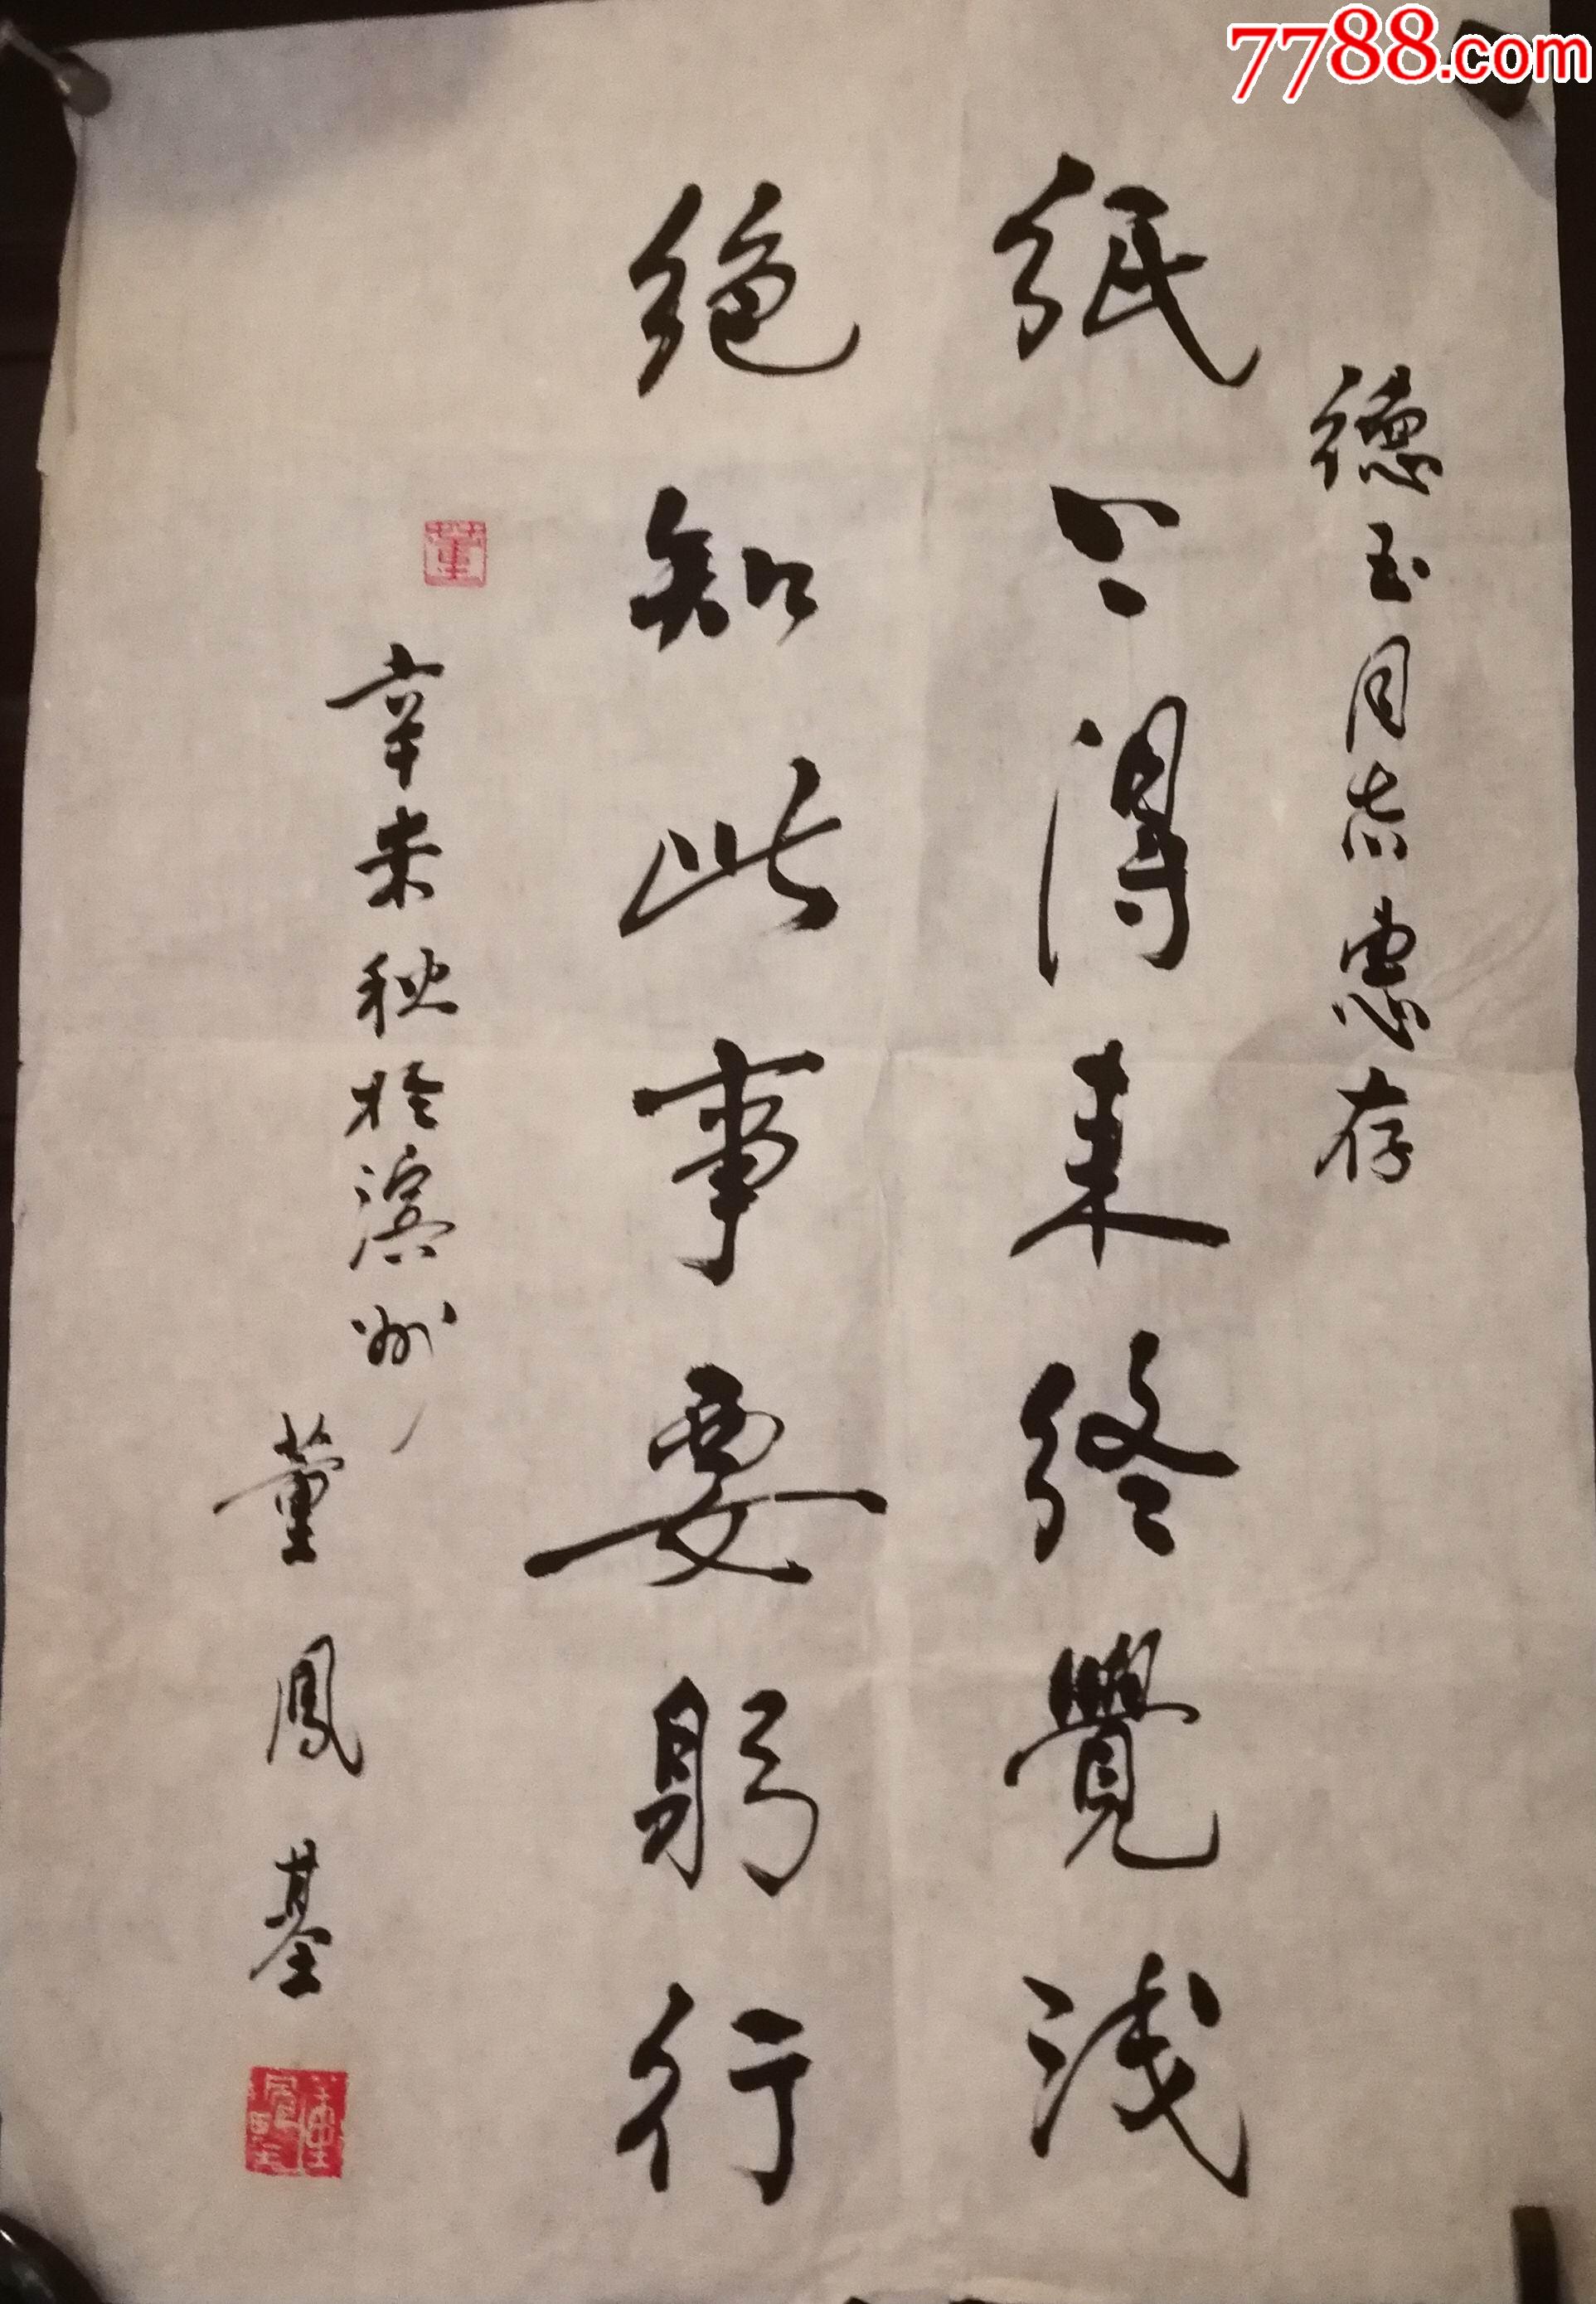 7788.com
德玉同志惠存
紙上得来终覺浅
绝知此事要躬行
辛未秋於濱州
董鳳基
董